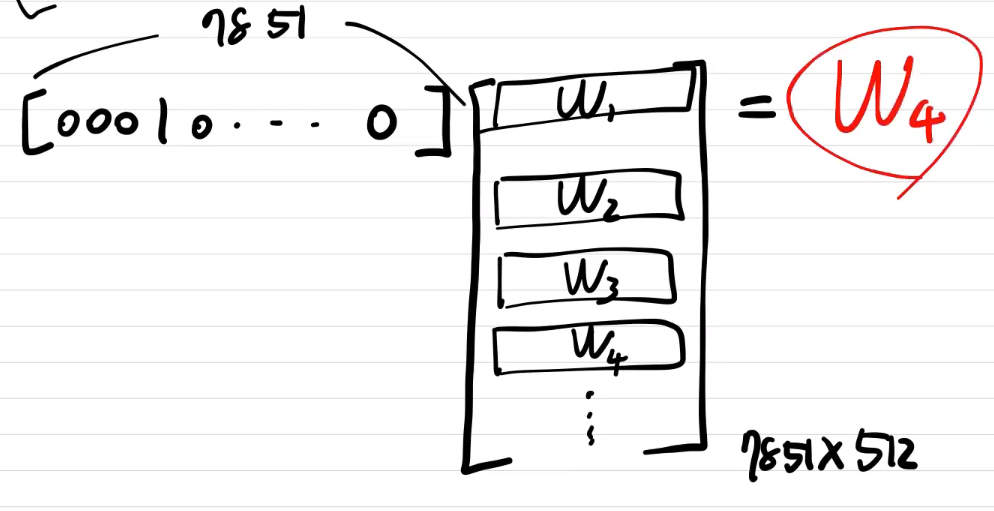 7851
[00010... 0] [W₁ = W₄
W₂
W₃
W₄
⋮
7851×512